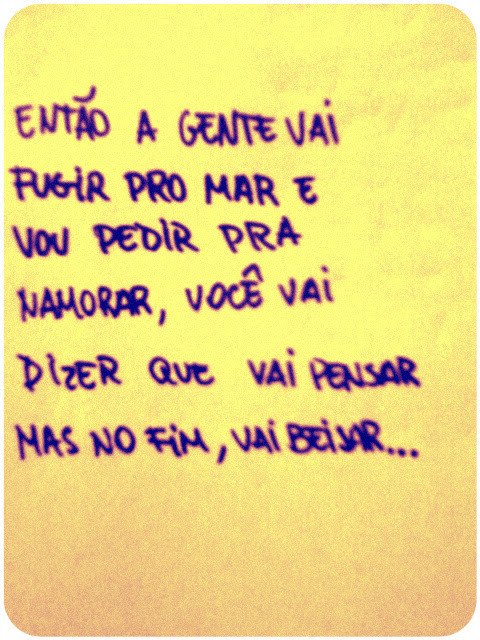 ENTÃO A GENTE VAI
FUGIR PRO MAR E
VOU PEDIR PRA
NAMORAR, VOCÊ VAI
DIZER QUE VAI PENSAR
MAS NO FIM, VAI BEIJAR...